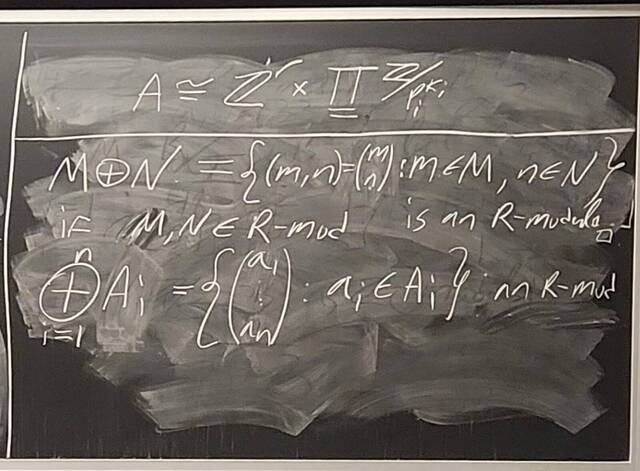 A ≅ ℤ^r × ∏ ℤ/p_i^{k_i}
M⊕N = {(m,n)=(m n) : m∈M, n∈N}
if M,N∈R-mod is an R-module □
⊕_{i=1}^{n} A_i = {(a_1 ⋮ a_n) : a_i∈A_i} in R-mod